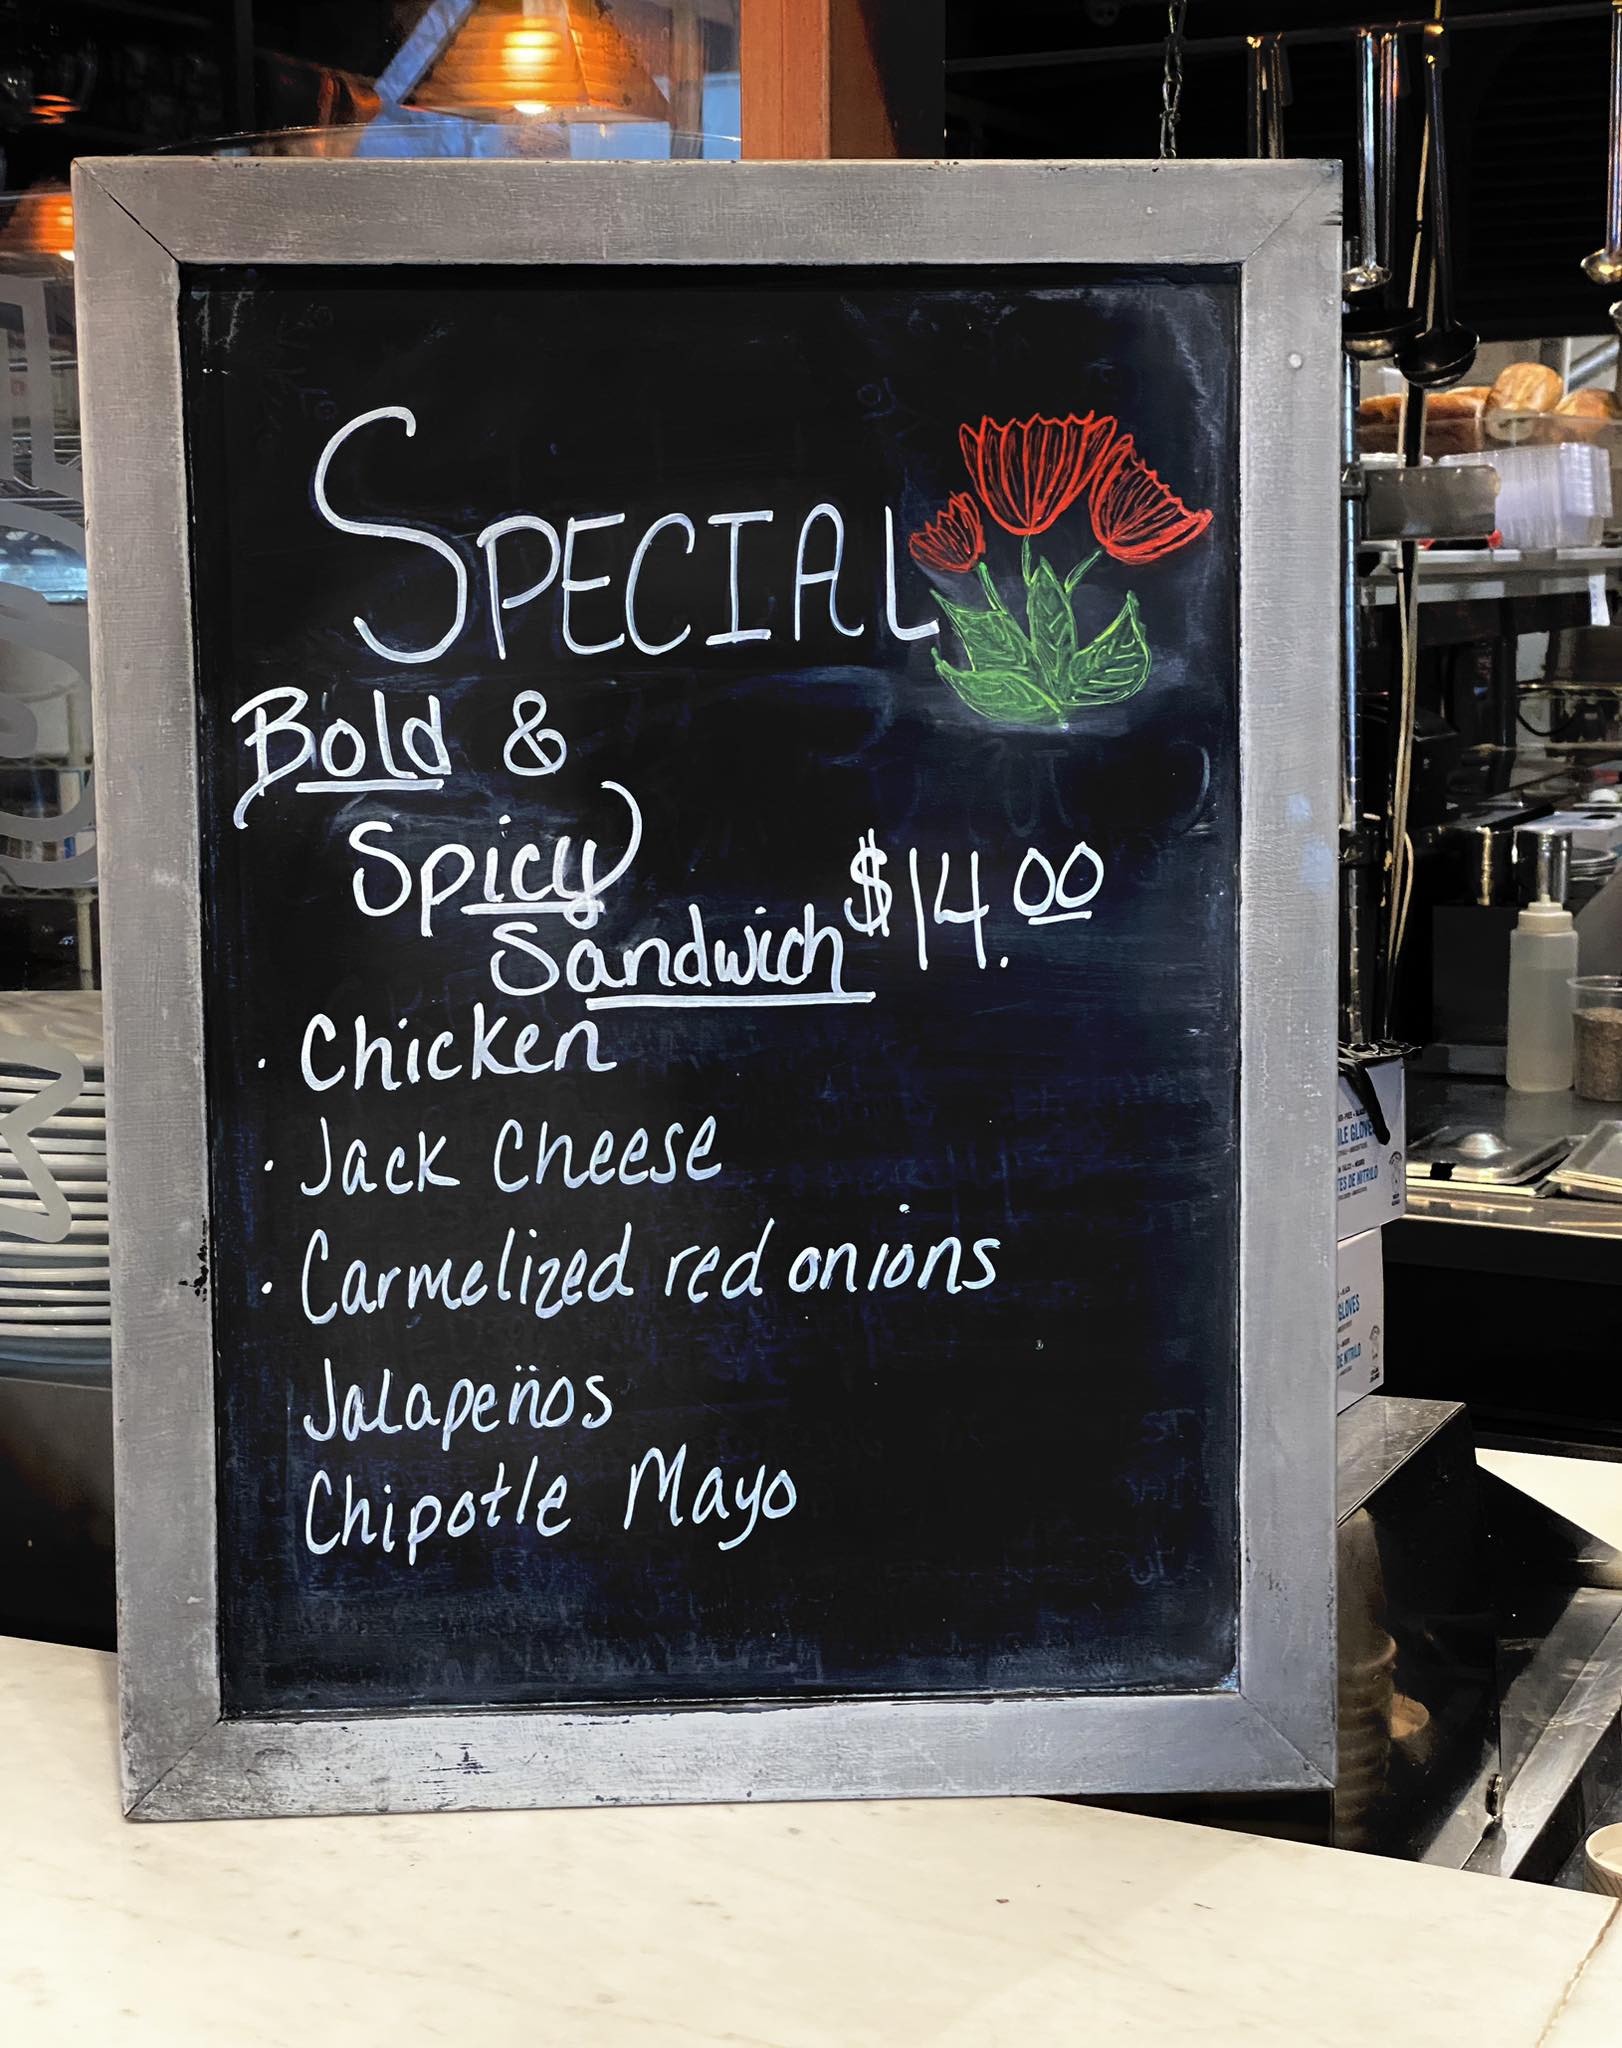 SPECIAL
Bold &
Spicy
Sandwich $14.00
· Chicken
· Jack Cheese
· Carmelized red onions
Jalapeños
Chipotle Mayo
GLOVES